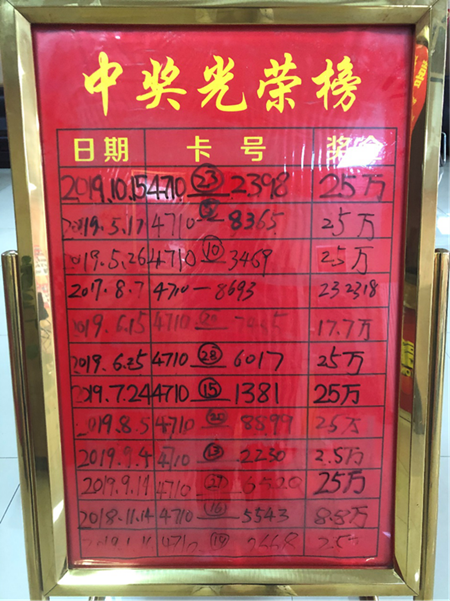 中奖光荣榜
日期 卡号 奖金
2019.10.15 4710 23 2398 25万
2019.5.17 4710 8365 25万
2019.5.26 4710 10 3469 25万
2017.8.7 4710-8693 232318
2019.6.15 4710 17.7万
2019.6.25 4710 28 6017 25万
2019.7.24 4710 15 1381 25万
2019.8.5 4710 8899 25万
2019.9.4 4710 13 2230 2.5万
2019.9.14 4710 27 6520 25万
2018.11.14 4710 16 5543 8.8万
4710 10 2.5万